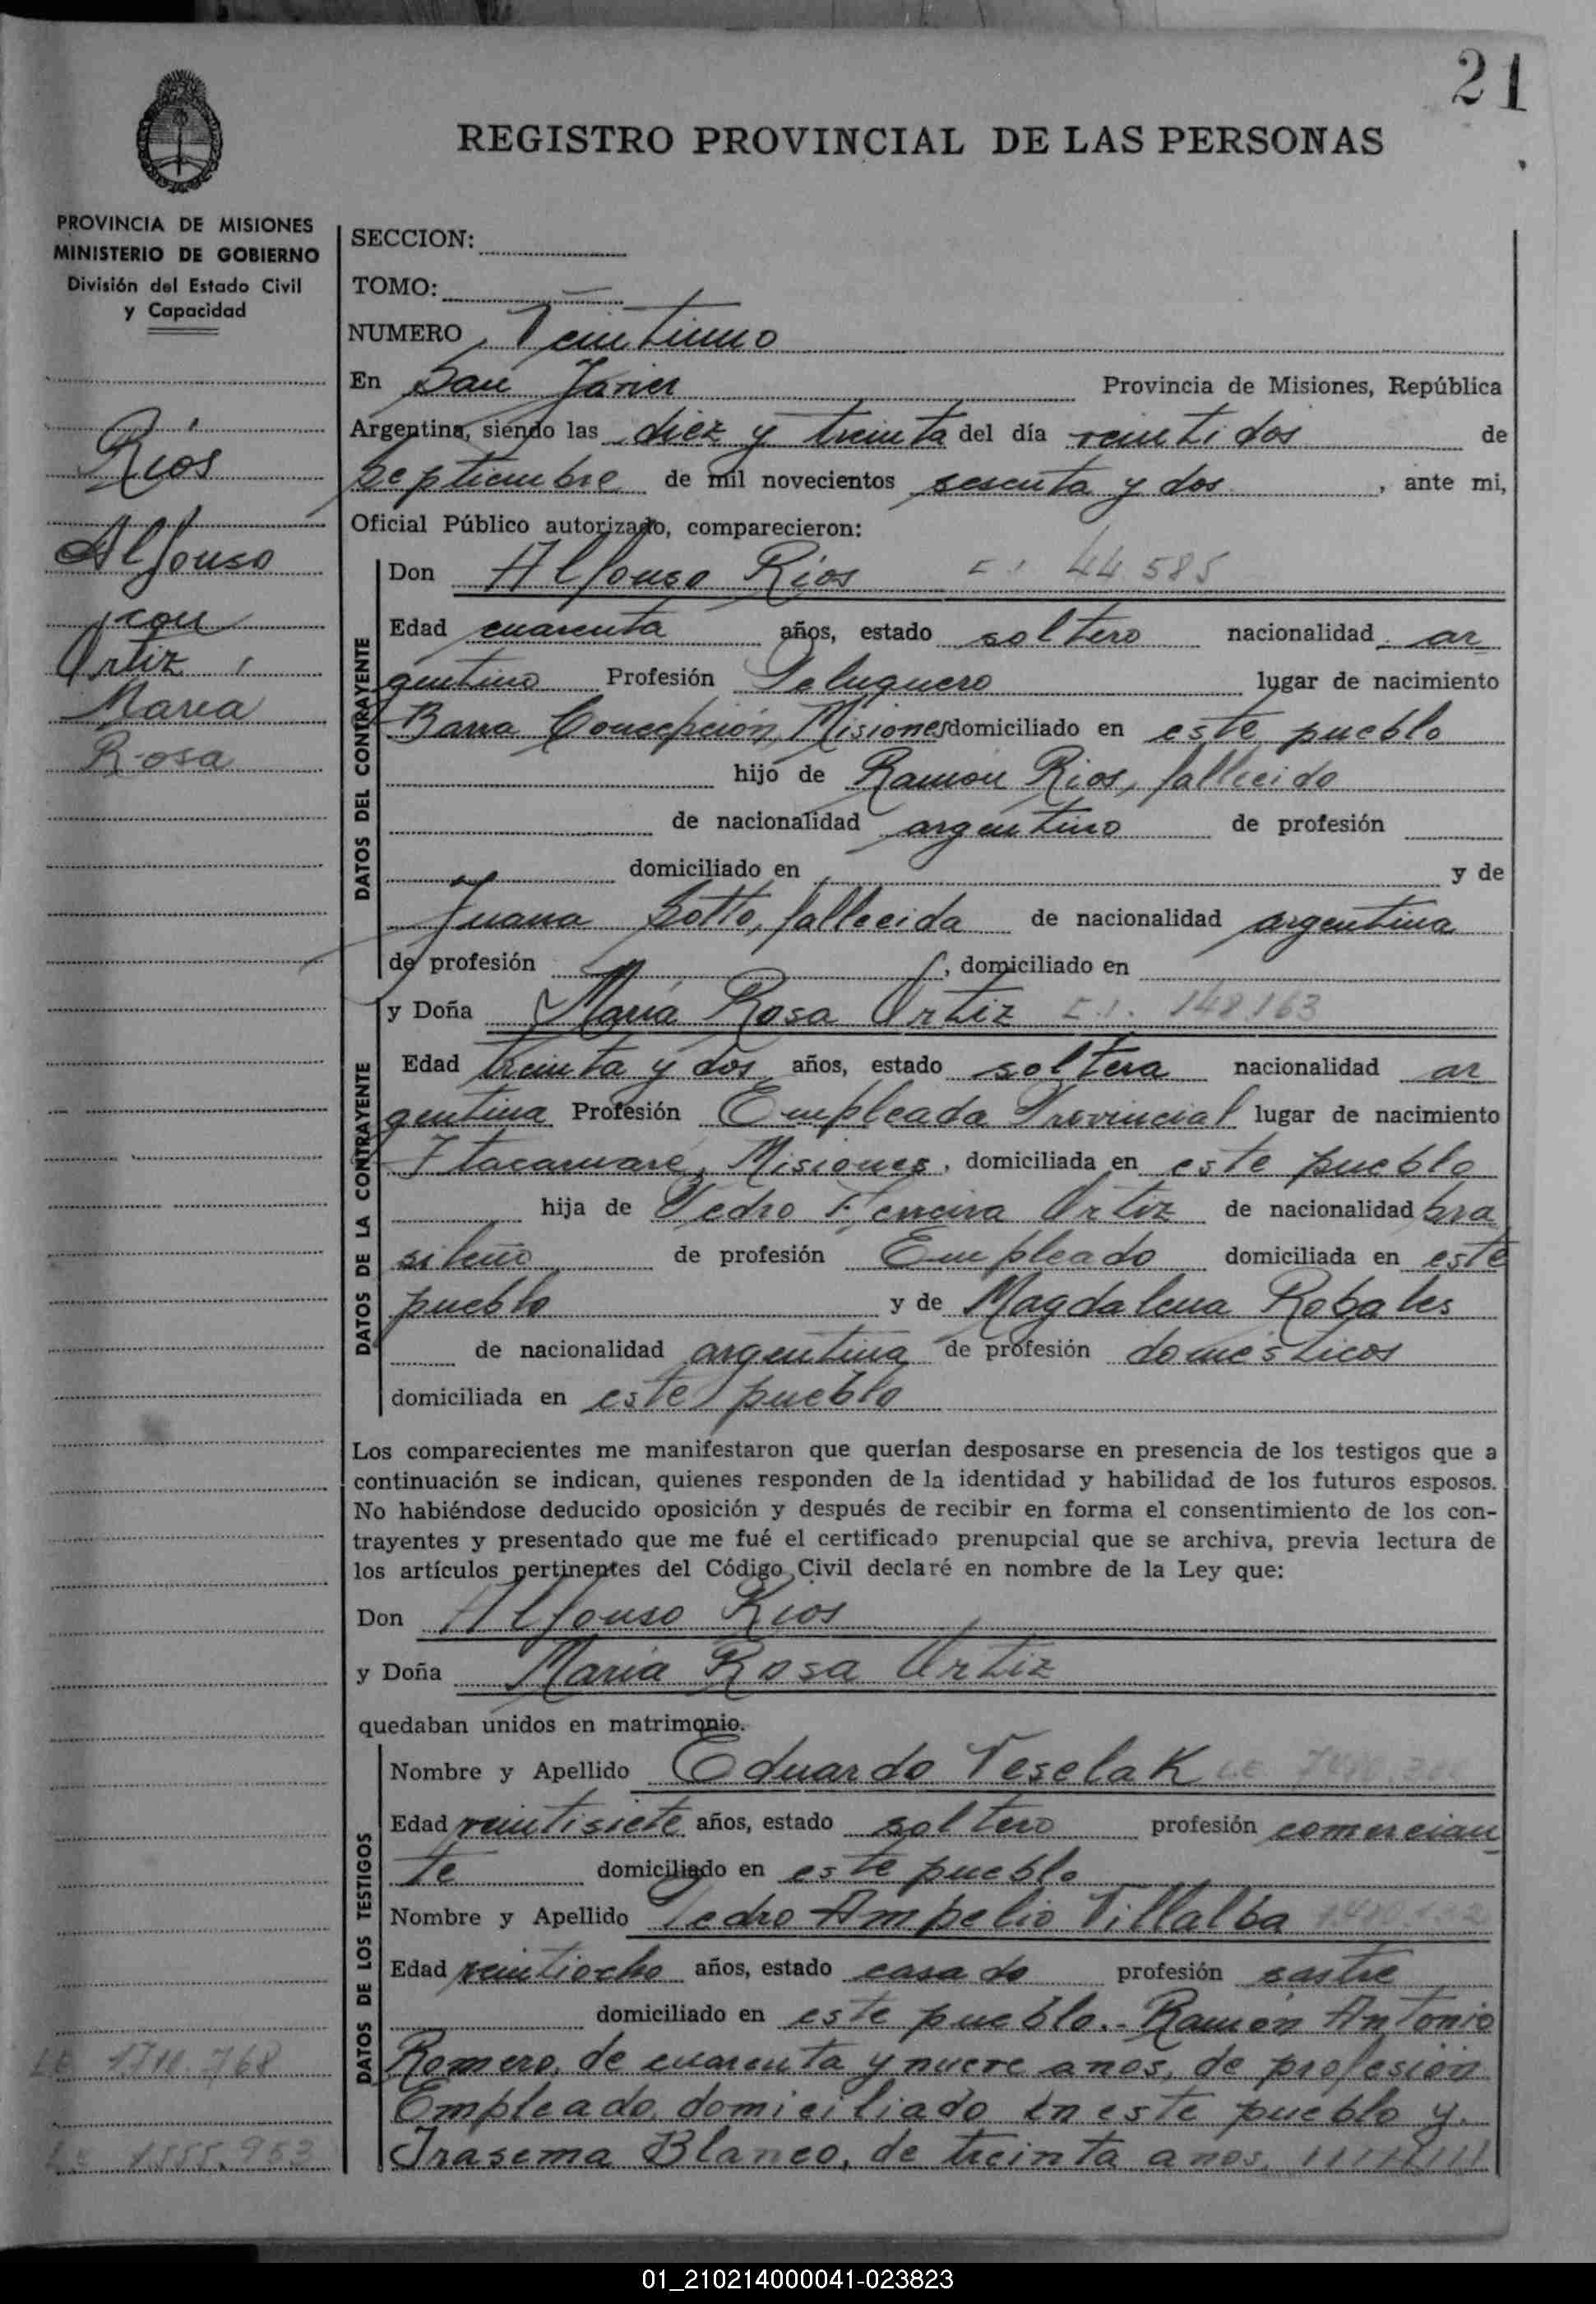 21
REGISTRO PROVINCIAL DE LAS PERSONAS
PROVINCIA DE MISIONES
MINISTERIO DE GOBIERNO
División del Estado Civil
y Capacidad
Ríos
Alfonso
con
Ortiz,
Maria
Rosa
SECCION:
TOMO:
NUMERO Veintiuno
En San Javier Provincia de Misiones, República
Argentina, siendo las diez y treinta del día veintidos de
Septiembre de mil novecientos sesenta y dos, ante mi,
Oficial Público autorizado, comparecieron:
DATOS DEL CONTRAYENTE
Don Alfonso Ríos C.I. 44.585
Edad cuarenta años, estado soltero nacionalidad ar
gentino Profesión Peluquero lugar de nacimiento
Barra Concepción, Misiones domiciliado en este pueblo
hijo de Ramon Rios, fallecido
de nacionalidad argentino de profesión
domiciliado en y de
Juana Sotto, fallecida de nacionalidad argentina
de profesión , domiciliado en
DATOS DE LA CONTRAYENTE
y Doña María Rosa Ortiz C.I. 148.163
Edad treinta y dos años, estado soltera nacionalidad ar
gentina Profesión Empleada Provincial lugar de nacimiento
Itacaruaré, Misiones, domiciliada en este pueblo
hija de Pedro Ferreira Ortiz de nacionalidad bra
sileño de profesión Empleado domiciliada en este
pueblo y de Magdalena Robales
de nacionalidad argentina de profesión domésticos
domiciliada en este pueblo
Los comparecientes me manifestaron que querían desposarse en presencia de los testigos que a
continuación se indican, quienes responden de la identidad y habilidad de los futuros esposos.
No habiéndose deducido oposición y después de recibir en forma el consentimiento de los con-
trayentes y presentado que me fué el certificado prenupcial que se archiva, previa lectura de
los artículos pertinentes del Código Civil declaré en nombre de la Ley que:
Don Alfonso Rios
y Doña María Rosa Ortiz
quedaban unidos en matrimonio.
DATOS DE LOS TESTIGOS
Nombre y Apellido Eduardo Veselak L.E.
Edad veintisiete años, estado soltero profesión comercian
te domiciliado en este pueblo
Nombre y Apellido Pedro Ampelio Villalba
Edad veintiocho años, estado casado profesión sastre
domiciliado en este pueblo.- Ramón Antonio
L.E. 1710.768
Romero, de cuarenta y nueve anos, de profesión
Empleado, domiciliado en este pueblo y.
L.E. 1.555.953
Irasema Blanco, de treinta anos, / / / / / / / /
01_210214000041-023823